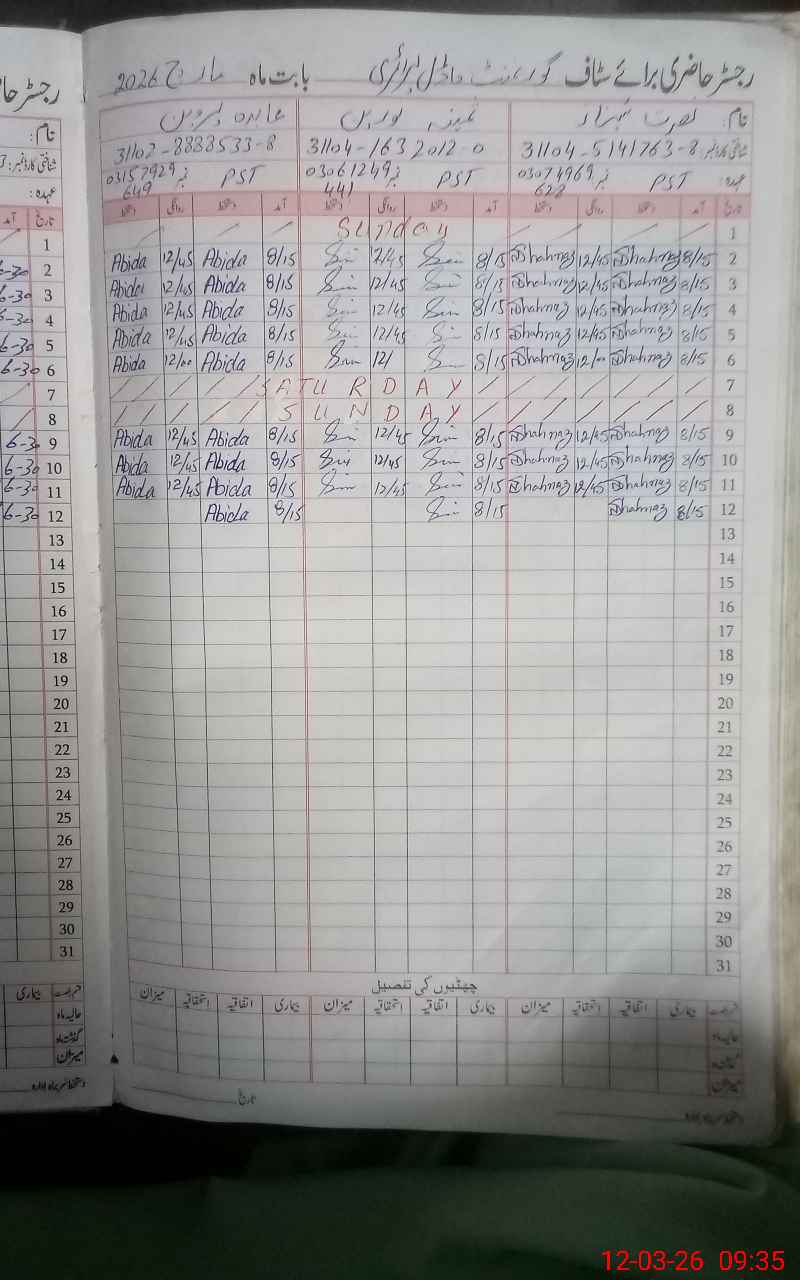 رجسٹر حاضری برائے سٹاف گورنمنٹ ماڈل پرائمری بابت ماہ مارچ 2026
نام: نصرت شہناز ثمینہ نورین عابدہ پروین
شناختی کارڈ نمبر: 31104-5141763-8 31104-163 2012-0 31102-8888533-8
عہدہ: PST نمبر 03074969 628 PST نمبر 03061249 441 PST نمبر 03157929 649
تاریخ آمد دستخط روانگی دستخط آمد دستخط روانگی دستخط آمد دستخط روانگی دستخط
1 Sunday
2 8/15 Shahnaz 12/45 Shahnaz 8/15 2/45 8/15 Abida 12/45 Abida
3 8/15 Shahnaz 12/45 Shahnaz 8/15 12/45 8/15 Abida 12/45 Abida
4 8/15 Shahnaz 12/45 Shahnaz 8/15 12/45 8/15 Abida 12/45 Abida
5 8/15 Shahnaz 12/45 Shahnaz 8/15 12/45 8/15 Abida 12/45 Abida
6 8/15 Shahnaz 12/00 Shahnaz 8/15 12/ 8/15 Abida 12/00 Abida
7 SATURDAY
8 SUNDAY
9 8/15 Shahnaz 12/45 Shahnaz 8/15 12/45 8/15 Abida 12/45 Abida
10 8/15 Shahnaz 12/45 Shahnaz 8/15 12/45 8/15 Abida 12/45 Abida
11 8/15 Shahnaz 12/45 Shahnaz 8/15 12/45 8/15 Abida 12/45 Abida
12 8/15 Shahnaz 8/15 8/15 Abida
13
14
15
16
17
18
19
20
21
22
23
24
25
26
27
28
29
30
31
چھٹیوں کی تفصیل
رخصت بیماری اتفاقیہ استحقاقیہ میزان بیماری اتفاقیہ استحقاقیہ میزان بیماری اتفاقیہ استحقاقیہ میزان
حالیہ ماہ
گذشتہ ماہ
میزان
دستخط سربراہ ادارہ تاریخ
رجسٹر حا
نام:
شناختی کارڈ نمبر:
عہدہ:
تاریخ آمد
1
2 6-30
3 6-30
4 6-30
5 6-30
6 6-30
7
8
9 6-30
10 6-30
11 6-30
12 6-30
13
14
15
16
17
18
19
20
21
22
23
24
25
26
27
28
29
30
31
رخصت بیماری
حالیہ ماہ
گذشتہ ماہ
میزان
دستخط سربراہ ادارہ
12-03-26 09:35